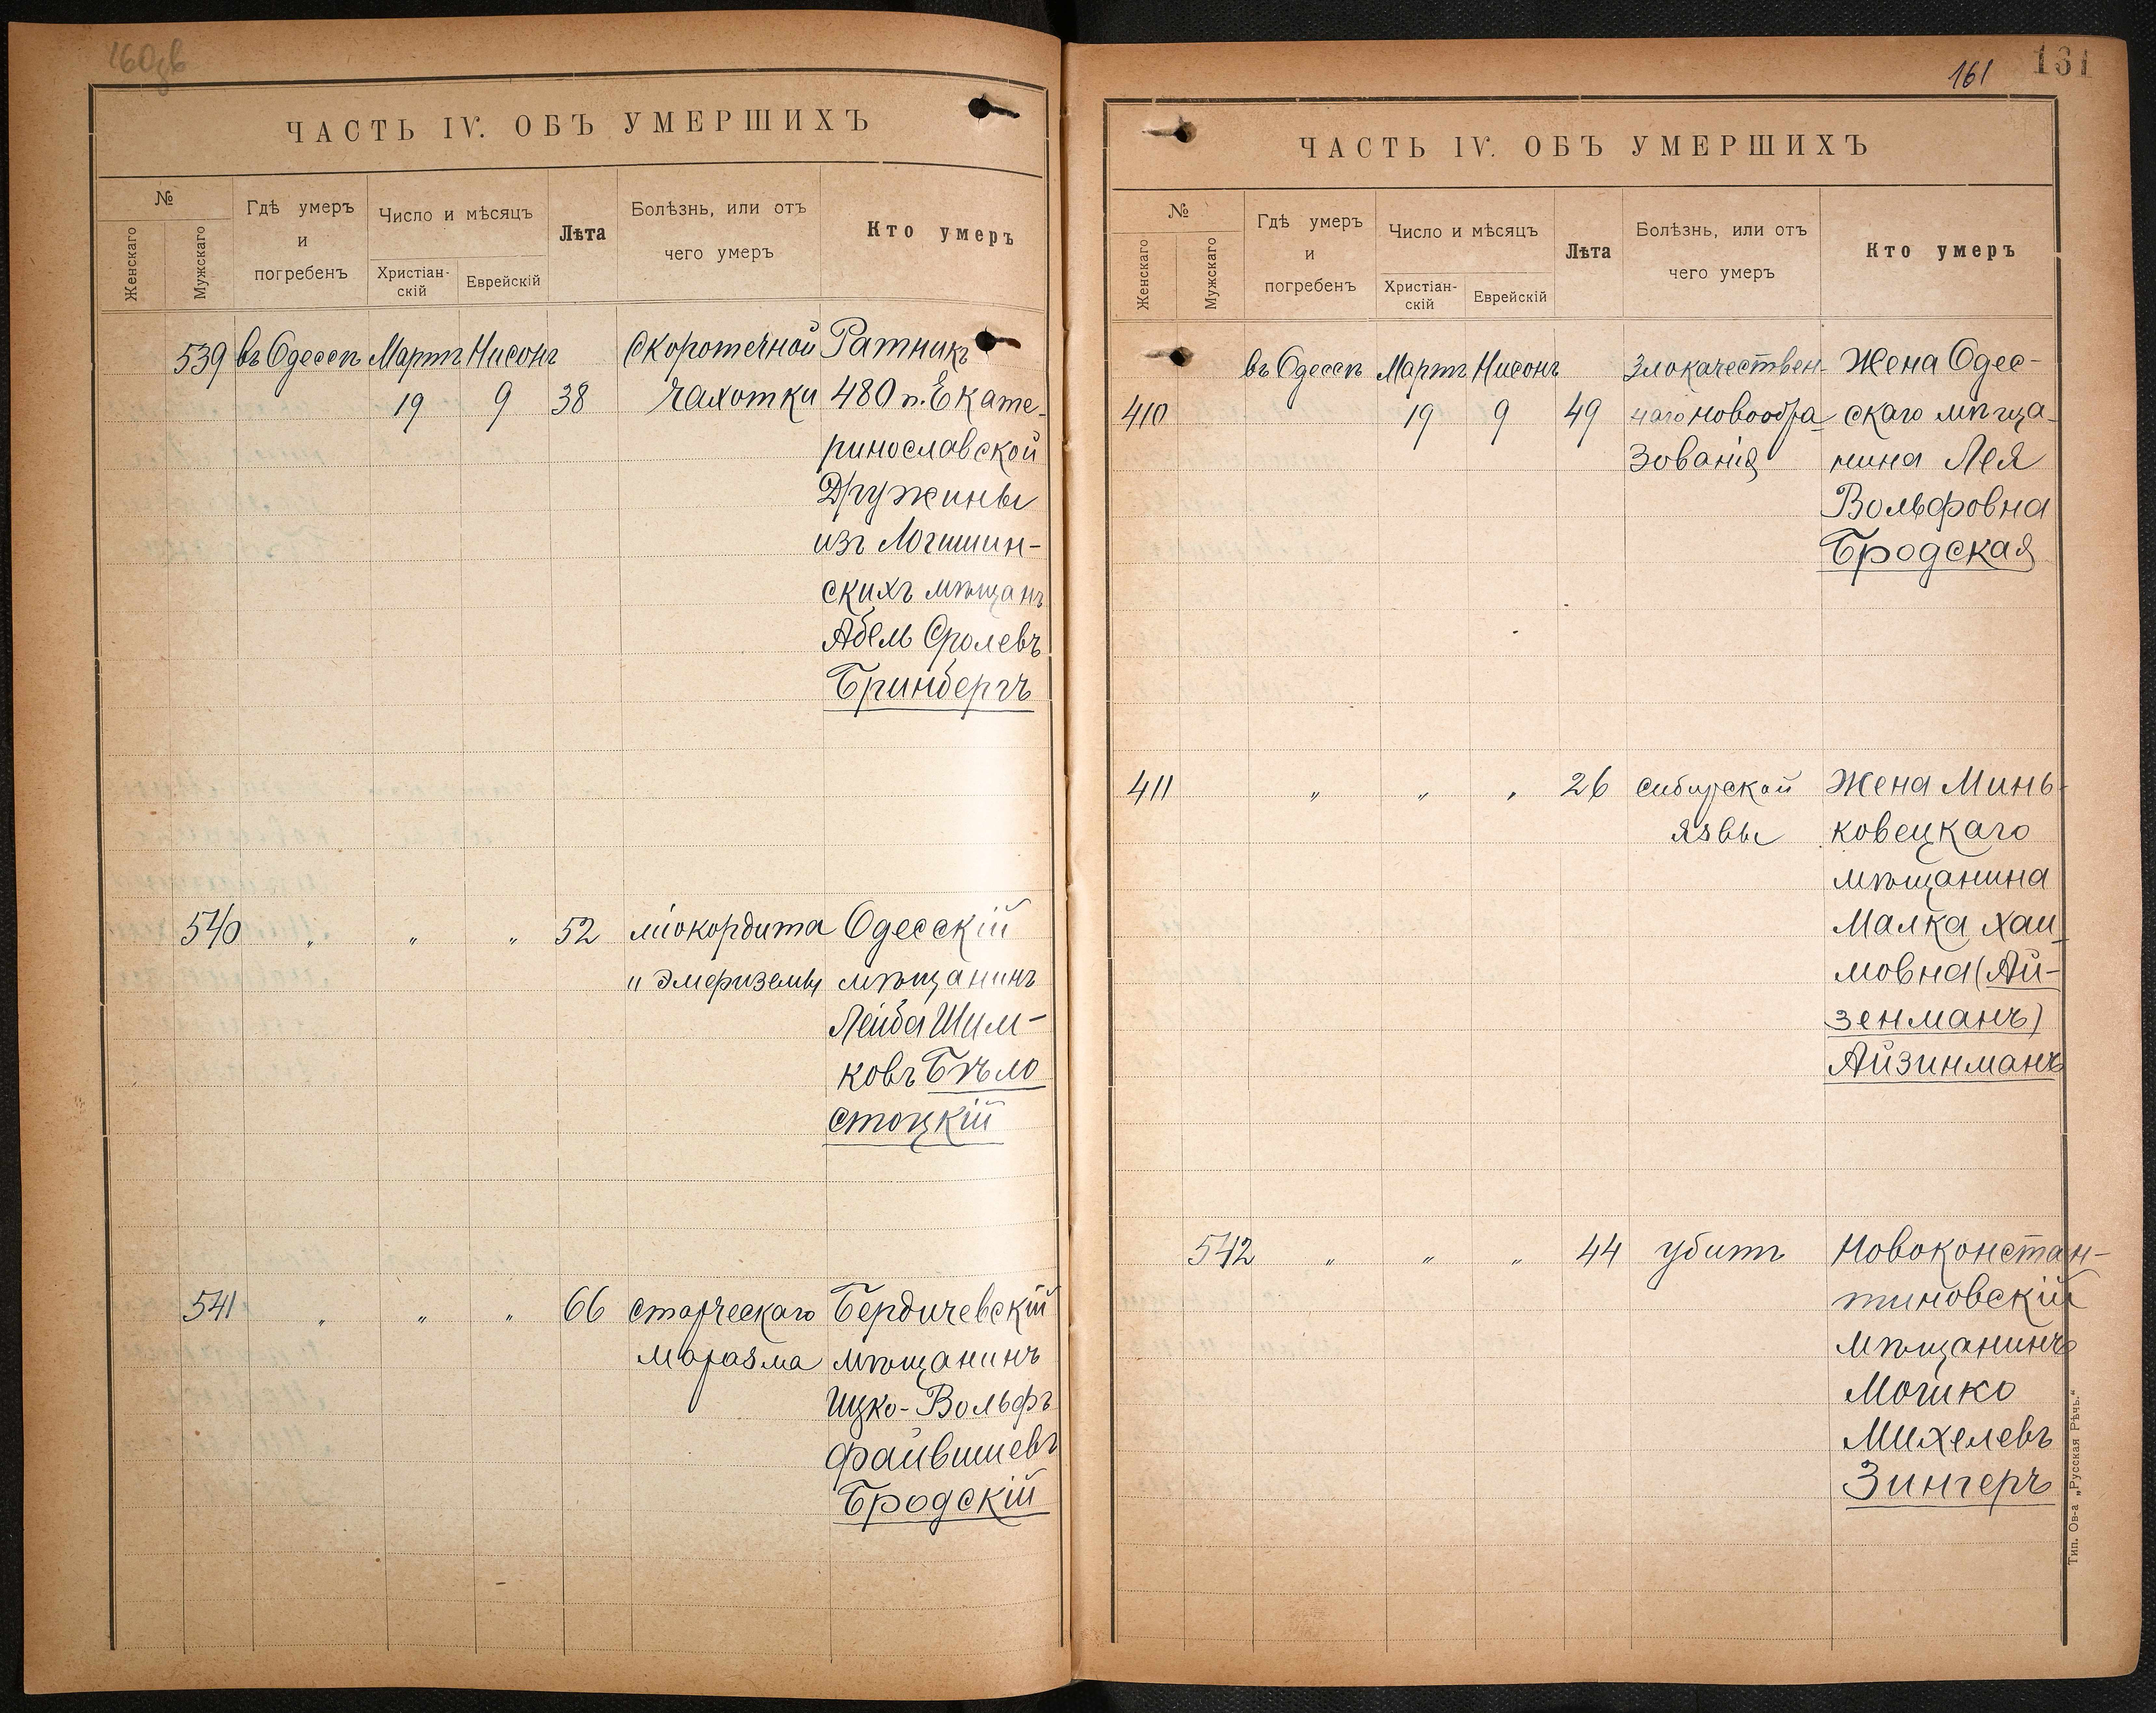 160об
ЧАСТЬ IV. ОБЪ УМЕРШИХЪ
№
Женскаго
Мужскаго
Гдѣ умеръ
и
погребенъ
Число и мѣсяцъ
Христіан-
скій
Еврейскій
Лѣта
Болѣзнь, или отъ
чего умеръ
Кто умеръ
539 въ Одессѣ Мартъ Нисонъ Скоротечной Ратникъ
19 9 38 чахотки 480 п. Екате-
ринославской
Дружины
изъ Логишин-
скихъ мѣщанъ
Абель Сролевъ
Бринбергъ
540 " " " 52 міокордита Одесскій
и эмфиземы мѣщанинъ
Лейба Шим-
ковъ Бѣло
стоцкій
541 " " " 66 старческаго Бердичевскій
маразма мѣщанинъ
Ицко-Вольфъ
Файвишевъ
Бродскій
161
161
ЧАСТЬ IV. ОБЪ УМЕРШИХЪ
№
Женскаго
Мужскаго
Гдѣ умеръ
и
погребенъ
Число и мѣсяцъ
Христіан-
скій
Еврейскій
Лѣта
Болѣзнь, или отъ
чего умеръ
Кто умеръ
въ Одессѣ Мартъ Нисонъ Злокачествен- Жена Одес-
410 19 9 49 наго новообра- скаго мѣща-
зованія нина Лея
Вольфовна
Бродская
411 " " " 26 сибирской ЖенаМинь-
язвы ковецкаго
мѣщанина
Малка Хаи-
мовна (Ай-
зенманъ)
Айзинманъ
542 " " " 44 убитъ Новоконстан-
тиновскій
мѣщанинъ
Мошко
Михелевъ
Зингеръ
Тип. Ов-а „Русская Рѣчь."